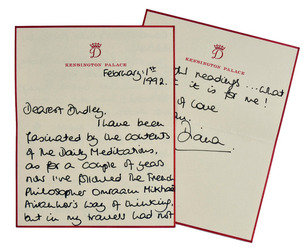 D
KENSINGTON PALACE
February 1st
1992.
Dearest Dudley,
I have been
fascinated by the contents
of the Daily Meditations,
as for a couple of years
now I've followed the French
Philosopher Omraam Mikhael
Aivanhov's way of thinking,
but in my travels had not
D
KENSINGTON PALACE
readings...what
it is for me!
of love
Diana